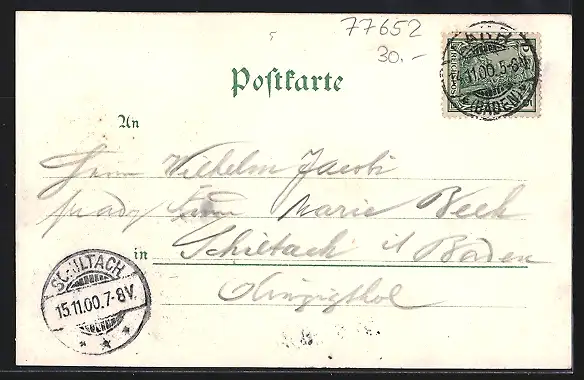 77652
30.-
Postkarte
LAHR
11.00.5-8N.
*(BADEN)*
An
Herrn Wilhelm Jacobi
Frau Marie Beck
in Schiltach i/ Baden
Kinzigthal
SCHILTACH.
15.11.00.7-8V.